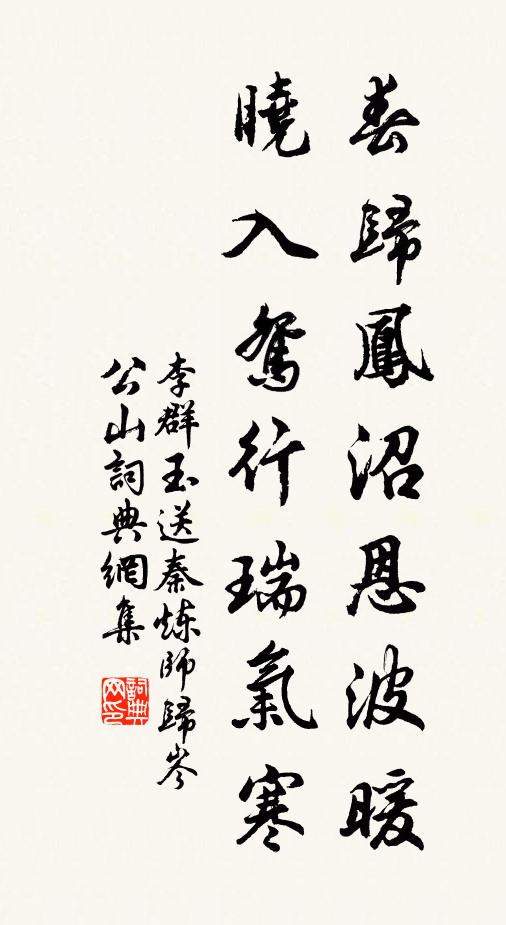 春歸鳳沼恩波暖
曉入鴛行瑞氣寒
李群玉送秦炼師歸岑
公山詞典網集
詞典
网印